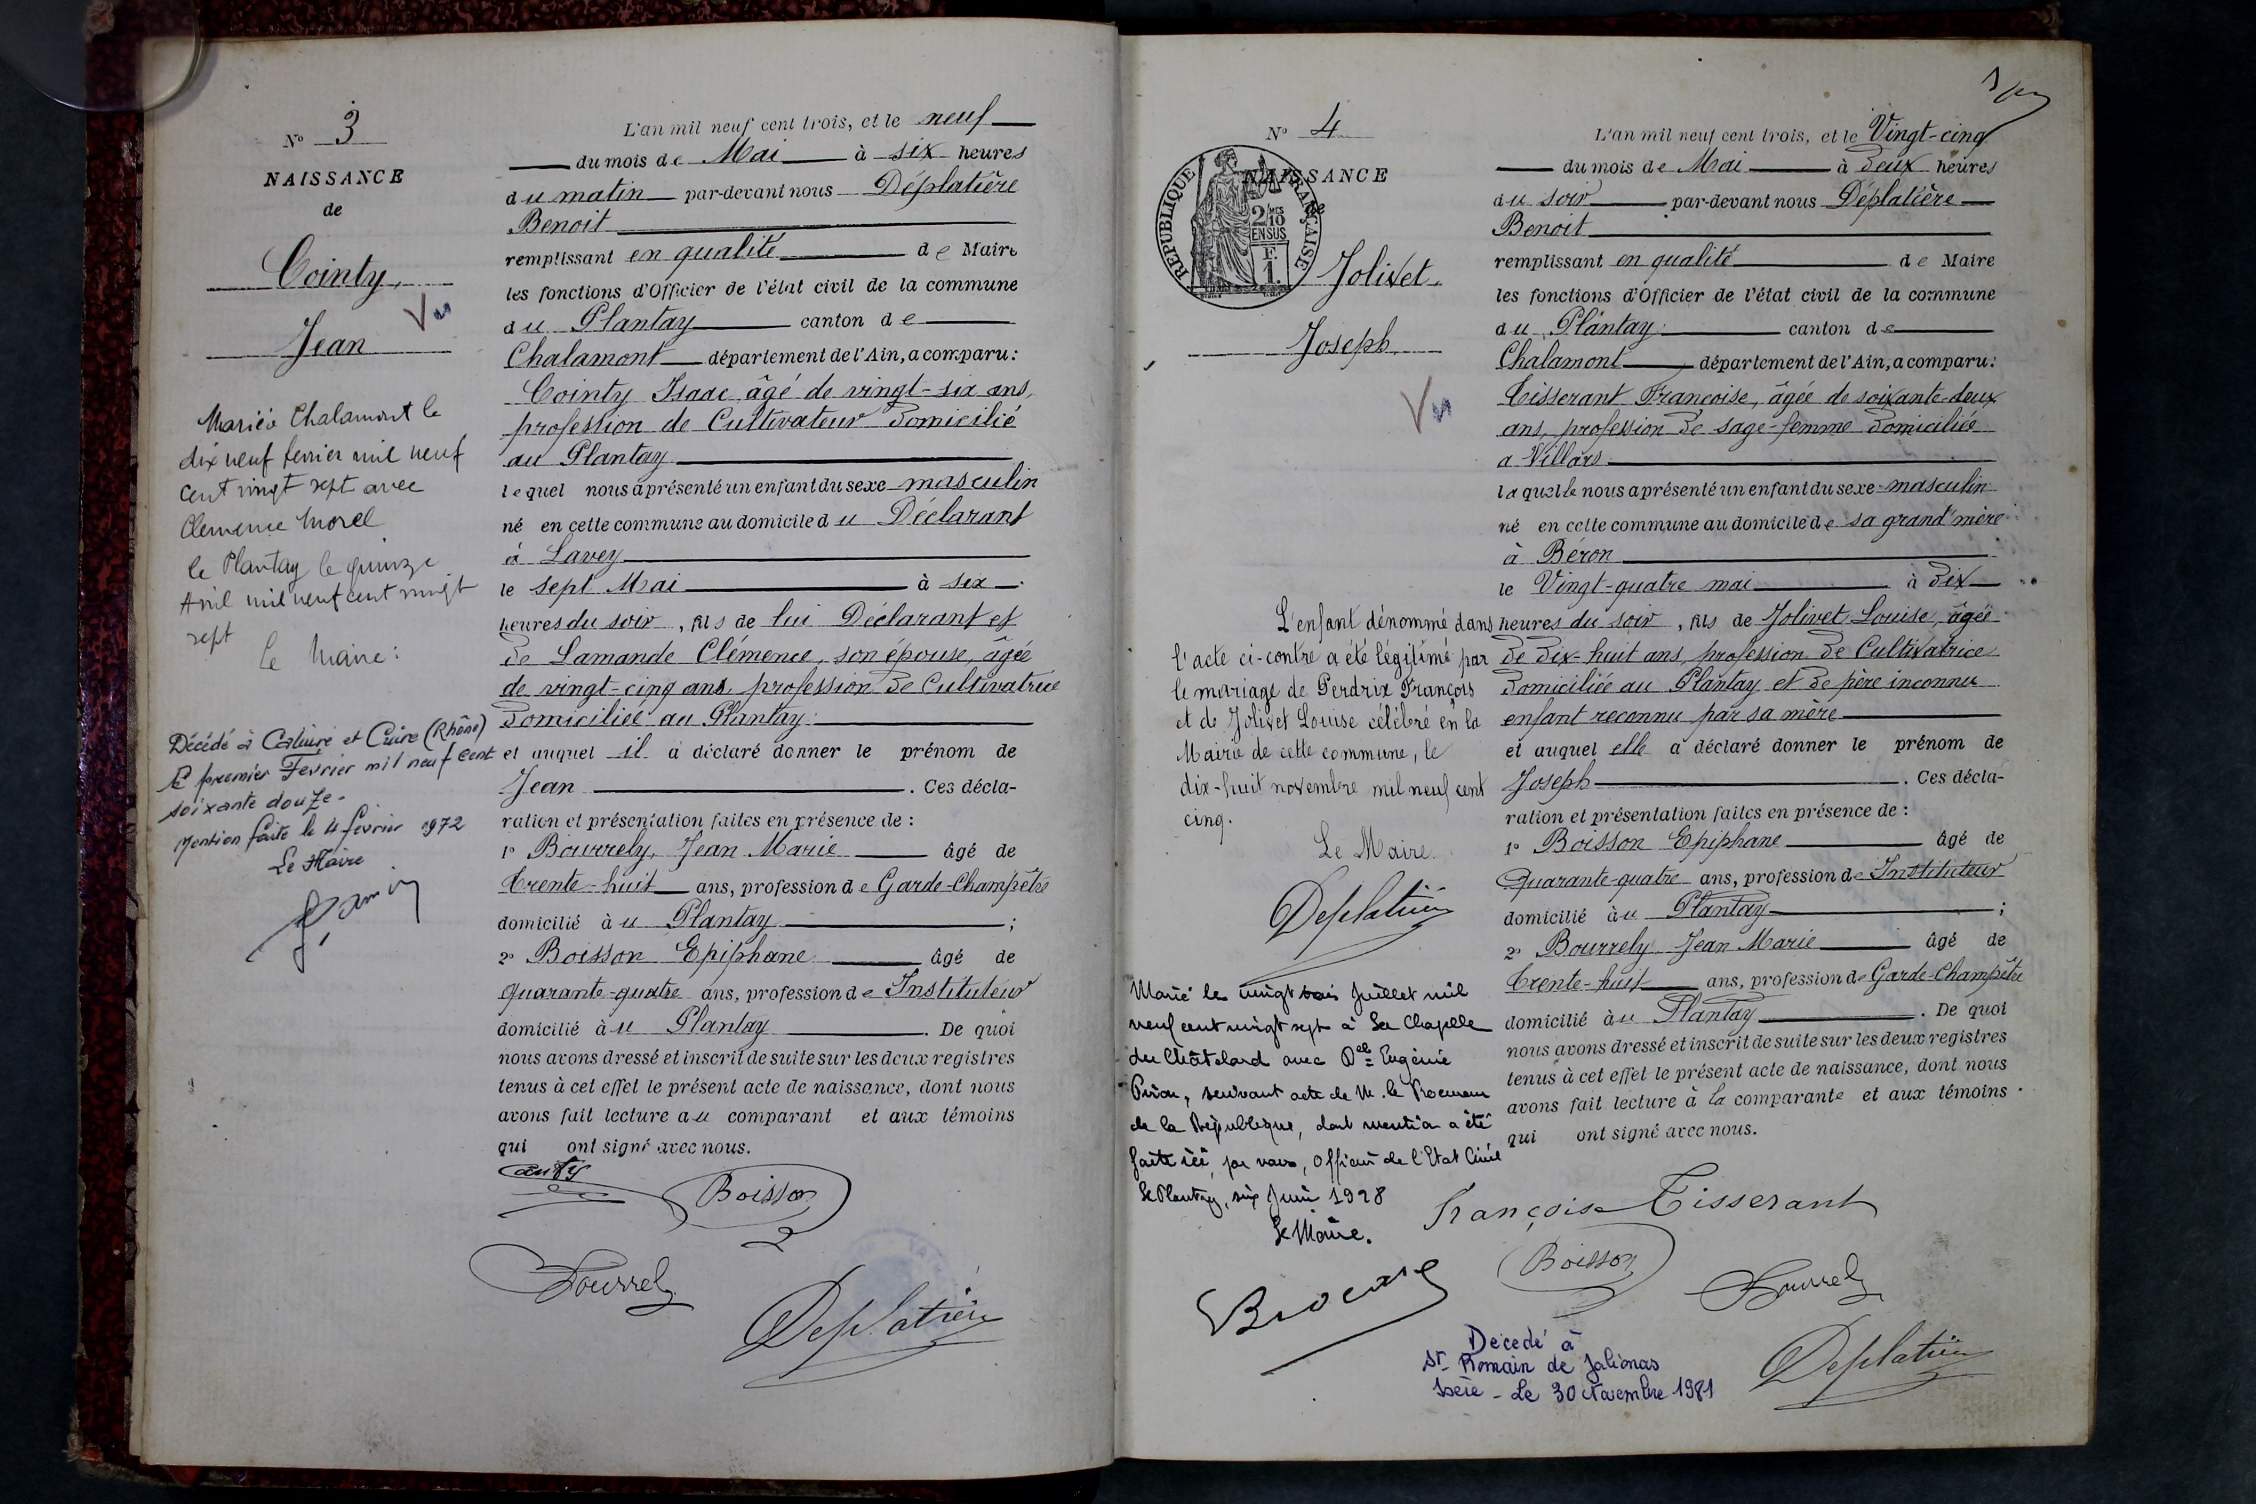 N° 3
NAISSANCE
de
Cointy,
Jean
Vu
Marié à Chalamont le
dix neuf février mil neuf
cent vingt sept avec
Clemence Morel
le Plantay le quinze
Avril mil neuf cent vingt
sept
Le Maire:
Décédé à Caluire et Cuire (Rhône)
le premier Février mil neuf cent
soixante douze.
Mention faite le 4 février 1972
Le Maire
L'an mil neuf cent trois, et le neuf
du mois de Mai à six heures
du matin par-devant nous Déplatière
Benoit
remplissant en qualité de Maire
les fonctions d'Officier de l'état civil de la commune
du Plantay canton de
Chalamont département de l'Ain, a comparu:
Cointy Isaac âgé de vingt-six ans,
profession de Cultivateur domicilié
au Plantay
lequel nous a présenté un enfant du sexe masculin
né en cette commune au domicile du Déclarant
à Lavey
le sept Mai à six
heures du soir, fils de lui Déclarant et
de Lamande Clémence, son épouse, âgée
de vingt-cinq ans, profession de Cultivatrice
domiciliée au Plantay
et auquel il a déclaré donner le prénom de
Jean . Ces décla-
ration et présentation faites en présence de :
1° Bourrely, Jean Marie âgé de
trente-huit ans, profession de Garde-Champêtre
domicilié au Plantay ;
2° Boisson Epiphane âgé de
quarante-quatre ans, profession de Instituteur
domicilié au Plantay . De quoi
nous avons dressé et inscrit de suite sur les deux registres
tenus à cet effet le présent acte de naissance, dont nous
avons fait lecture au comparant et aux témoins
qui ont signé avec nous.
Cointy
Boisson
Bourrely
Deplatière
N° 4
NAISSANCE
de
REPUBLIQUE FRANÇAISE
2/10 EN SUS
1 F.
Jolivet
Joseph
Vu
L'enfant dénommé dans
l'acte ci-contre a été légitimé par
le mariage de Perdrix François
et de Jolivet Louise célébré en la
Mairie de cette commune, le
dix-huit novembre mil neuf cent
cinq.
Le Maire
Deplatière
Marié le vingt trois Juillet mil
neuf cent vingt sept à La Chapelle
du Châtelard avec Delle Eugénie
, suivant acte de M. le Procureur
de la République, dont mention a été
faite ici, par nous, Officier de l'Etat Civil
Le Plantay, six Juin 1928
Le Maire.
L'an mil neuf cent trois, et le Vingt-cinq
du mois de Mai à deux heures
du soir par-devant nous Déplatière
Benoit
remplissant en qualité de Maire
les fonctions d'Officier de l'état civil de la commune
du Plantay canton de
Chalamont département de l'Ain, a comparu:
Tisserant Francoise, âgée de soixante-deux
ans, profession de sage-femme domiciliée
a Villars
laquelle nous a présenté un enfant du sexe masculin
né en cette commune au domicile de sa grand'mère
à Béron
le Vingt-quatre mai à dix
heures du soir, fils de Jolivet Louise, âgée
de dix-huit ans, profession de Cultivatrice
domiciliée au Plantay et de père inconnu
enfant reconnu par sa mère
et auquel elle a déclaré donner le prénom de
Joseph . Ces décla-
ration et présentation faites en présence de :
1° Boisson Epiphane âgé de
Quarante-quatre ans, profession de Instituteur
domicilié au Plantay ;
2° Bourrely Jean Marie âgé de
trente-huit ans, profession de Garde-Champêtre
domicilié au Plantay . De quoi
nous avons dressé et inscrit de suite sur les deux registres
tenus à cet effet le présent acte de naissance, dont nous
avons fait lecture à la comparante et aux témoins
qui ont signé avec nous.
Françoise Tisserant
Boisson
Bourrely
Deplatière
Décédé à
St Romain de Jalionas
Isère - Le 30 Novembre 1981